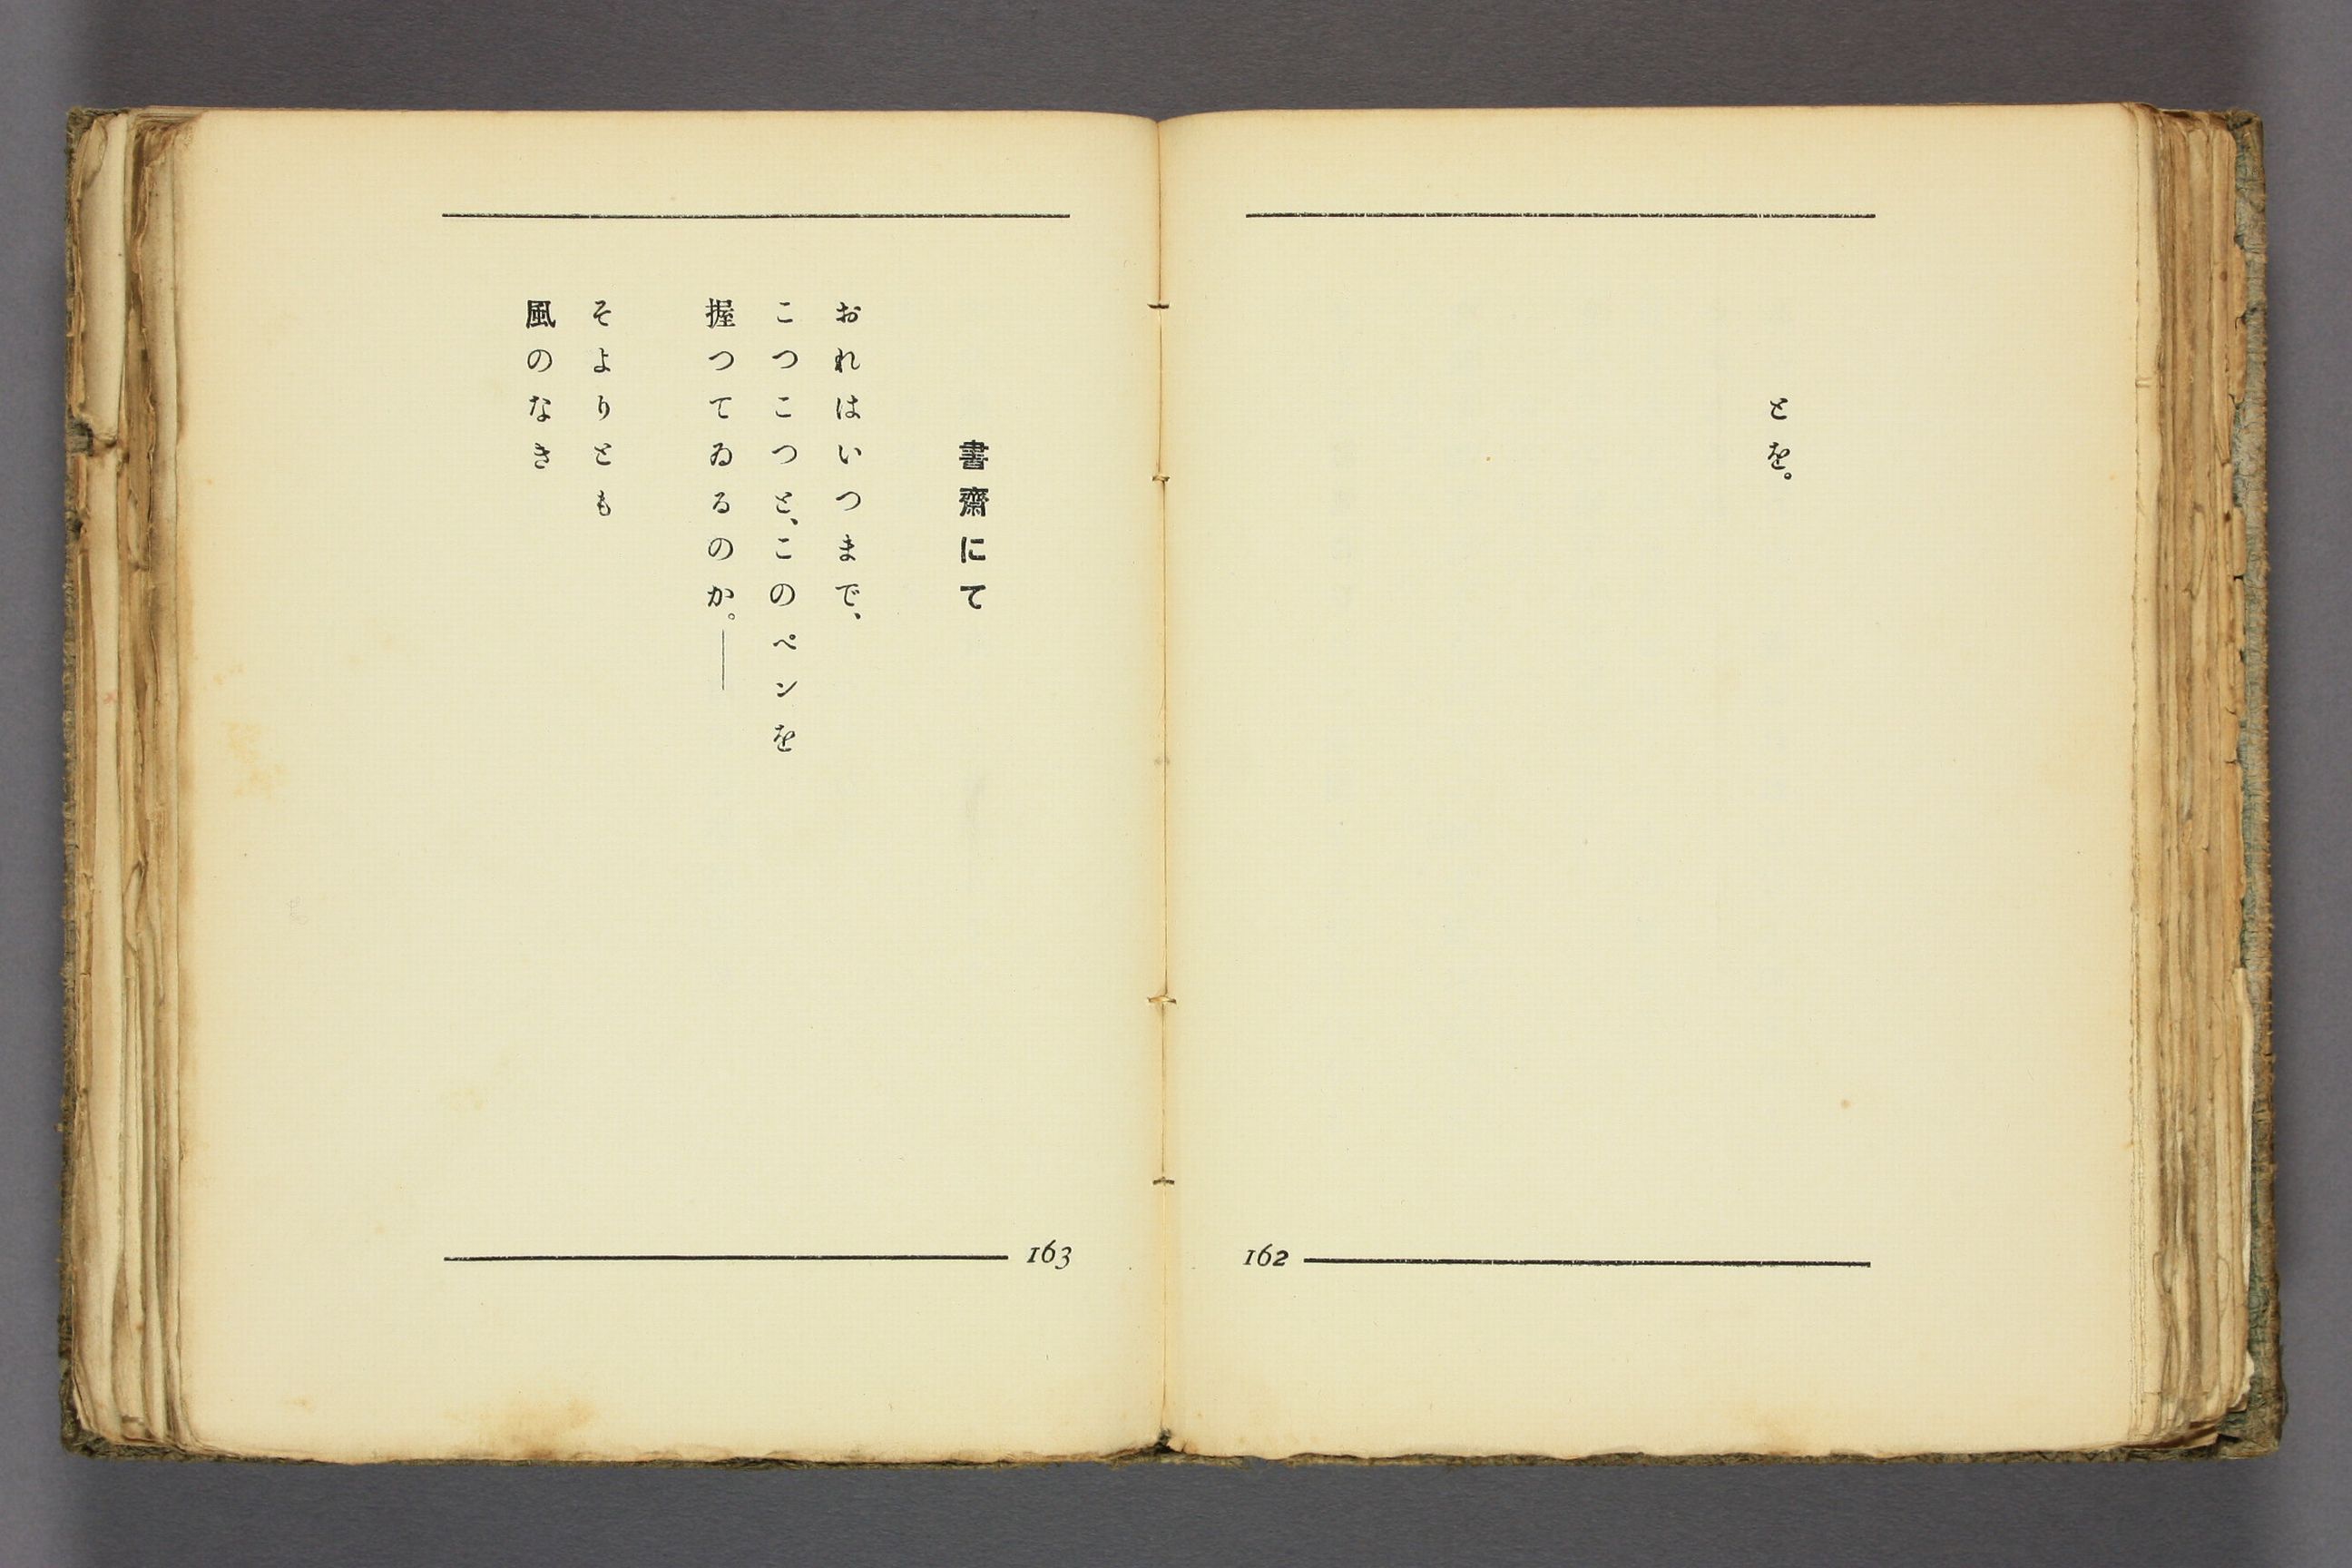 とを。
162
書齋にて
おれはいつまで、
こつこつと、このペンを
握つてゐるのか。――
そよりとも
風のなき
163